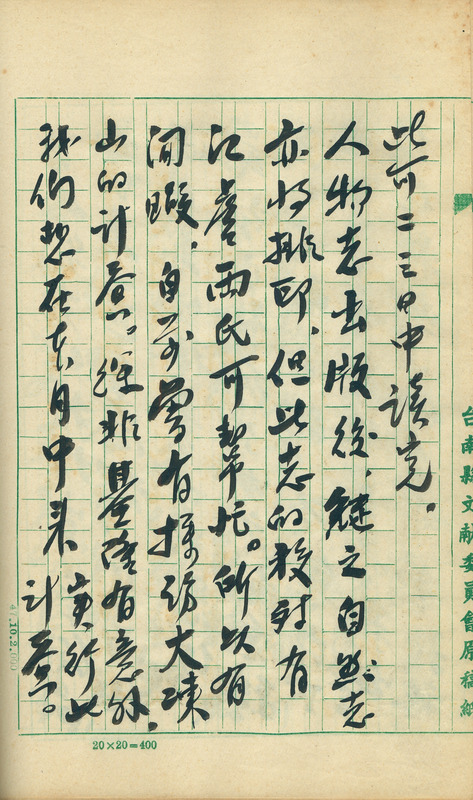 此可二三日中讀完。
人物志出版後,繼之自然志
亦將排印,但此志的校對有
江詹兩氏可幫忙。所以有
閒暇,自前曾有採訪大凍
山的計畫。深非基隆有意外,
我們想在本月中來實行此
計畫。
台南縣文獻委員會原稿紙
20×20=400